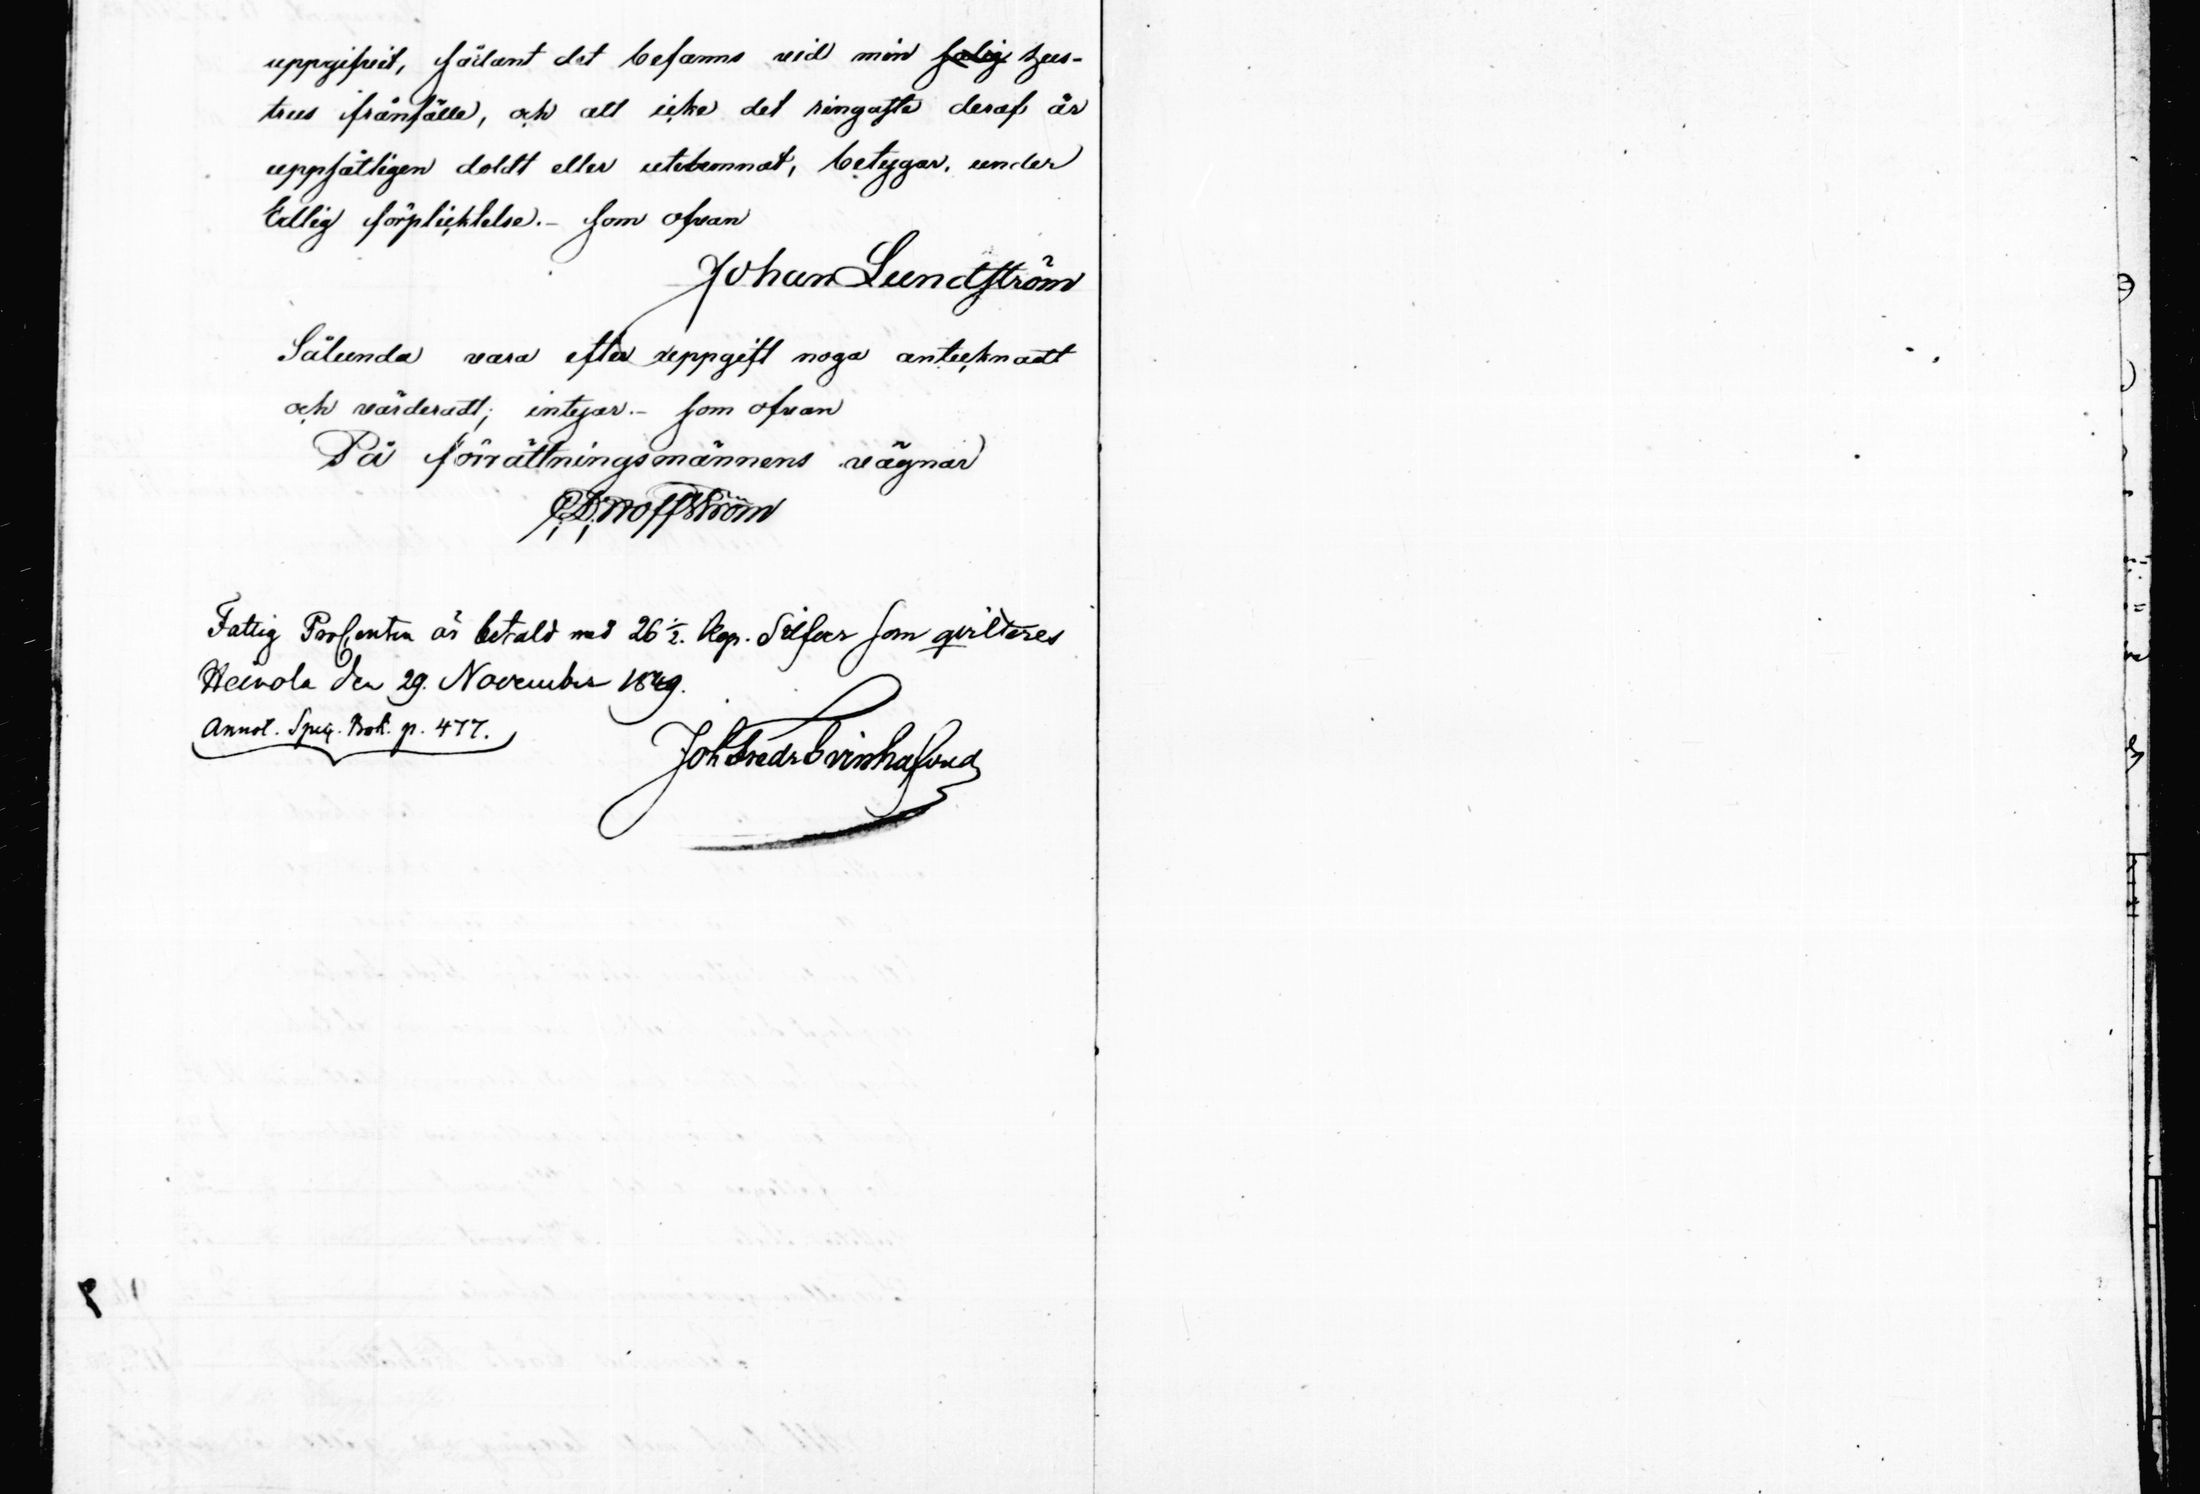 uppgifvit, sådant det befanns vid min salig hus-
trus frånfälle, och att icke det ringaste deraf är
uppsåtligen doldt eller utelemnat, betygar, under
Edlig förpliktelse. – Som ofvan
Johan Lundström
Sålunda vara efter uppgift noga antecknadt
och värderadt; intygar. – Som ofvan
På förrättningsmännens vägnar
Fattig Procenten är betald med 26 1/2. Kop. Silfver som qvitteres
Heinola den 29. November 1849.
Annot. Spec. Bok. p. 477.
Joh Fredr Svinhufvud